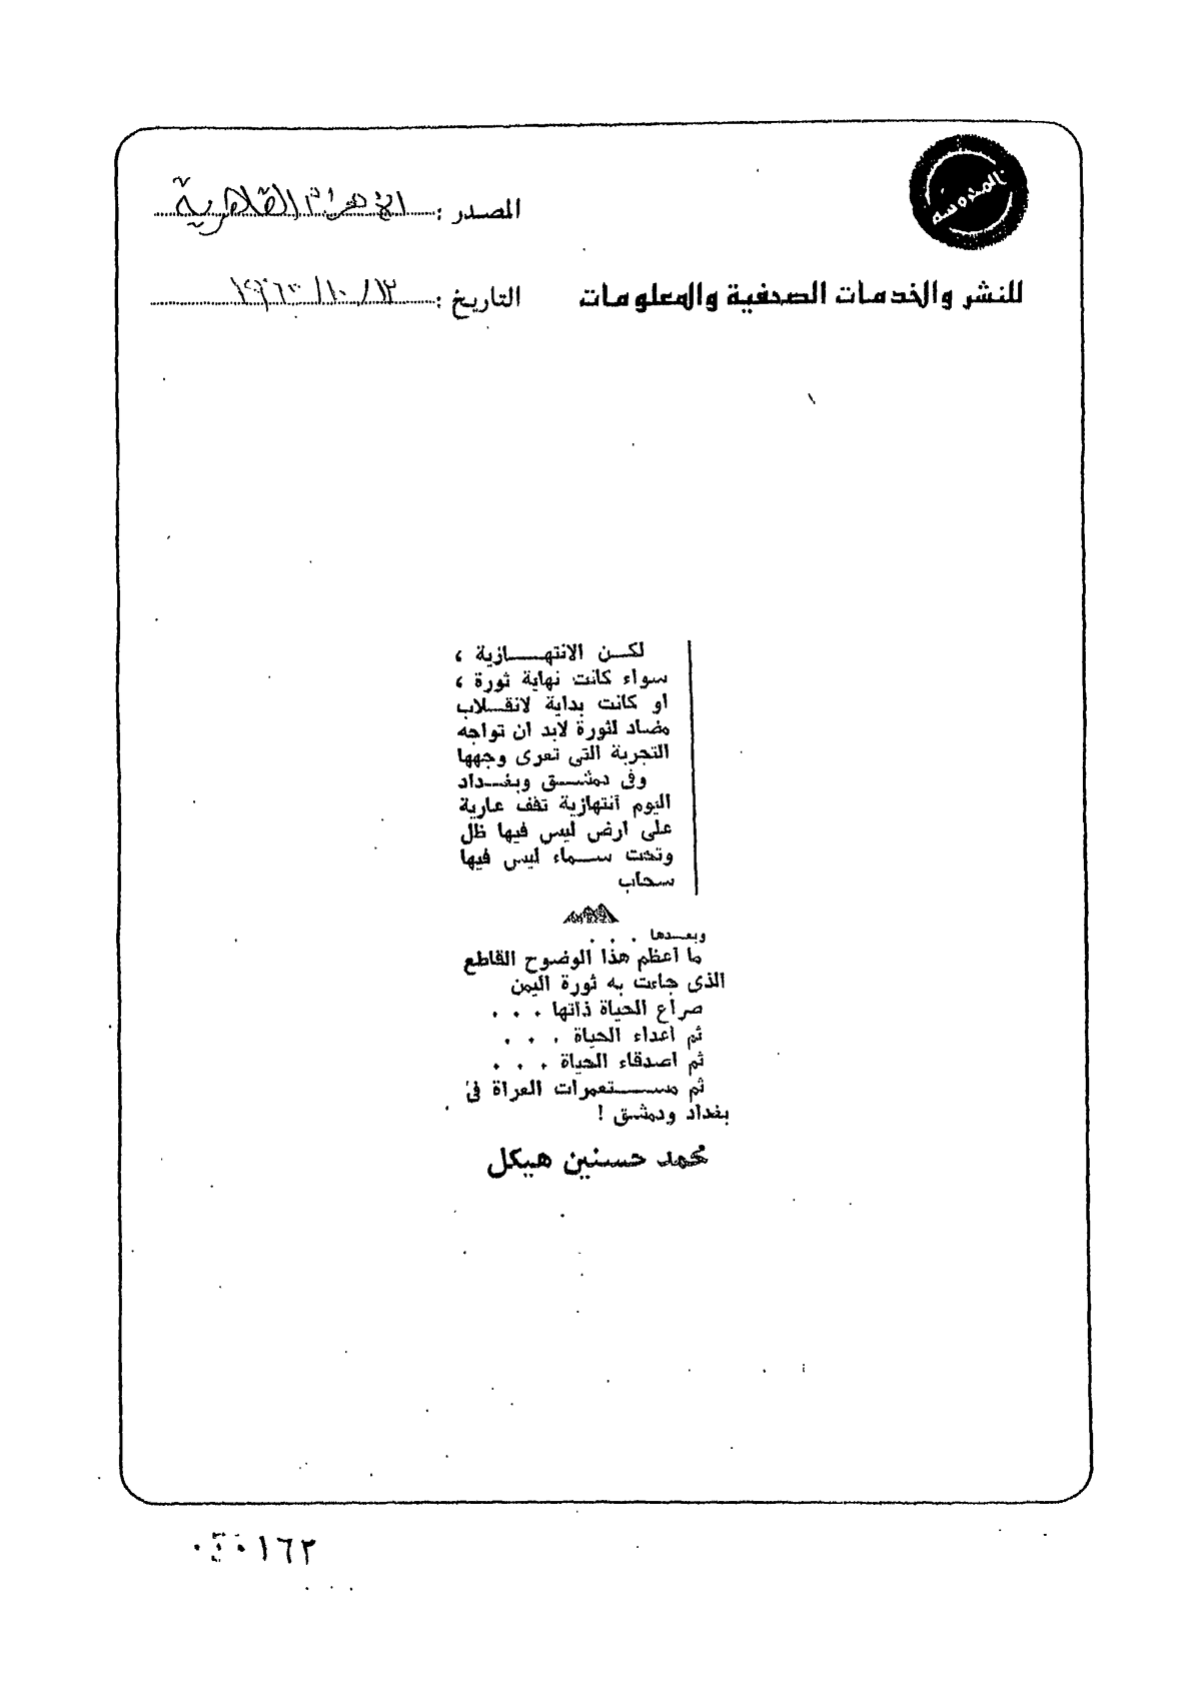 المحروسة
المصدر : الأهرام القاهرية
للنشر والخدمات الصحفية والمعلومات
التاريخ : ١٢/ ١٠/
لكن الانتهازية ،
سواء كانت نهاية ثورة ،
او كانت بداية لانقلاب
مضاد لثورة لابد ان تواجه
التجربة التى تعرى وجهها
وفى دمشق وبغداد
اليوم انتهازية تقف عارية
على ارض ليس فيها ظل
وتحت سماء ليس فيها
سحاب
وبعدها . . .
ما اعظم هذا الوضوح القاطع
الذى جاءت به ثورة اليمن
صراع الحياة ذاتها . . .
ثم اعداء الحياة . . .
ثم اصدقاء الحياة . . .
ثم مستعمرات العراة فى
بغداد ودمشق !
محمد حسنين هيكل